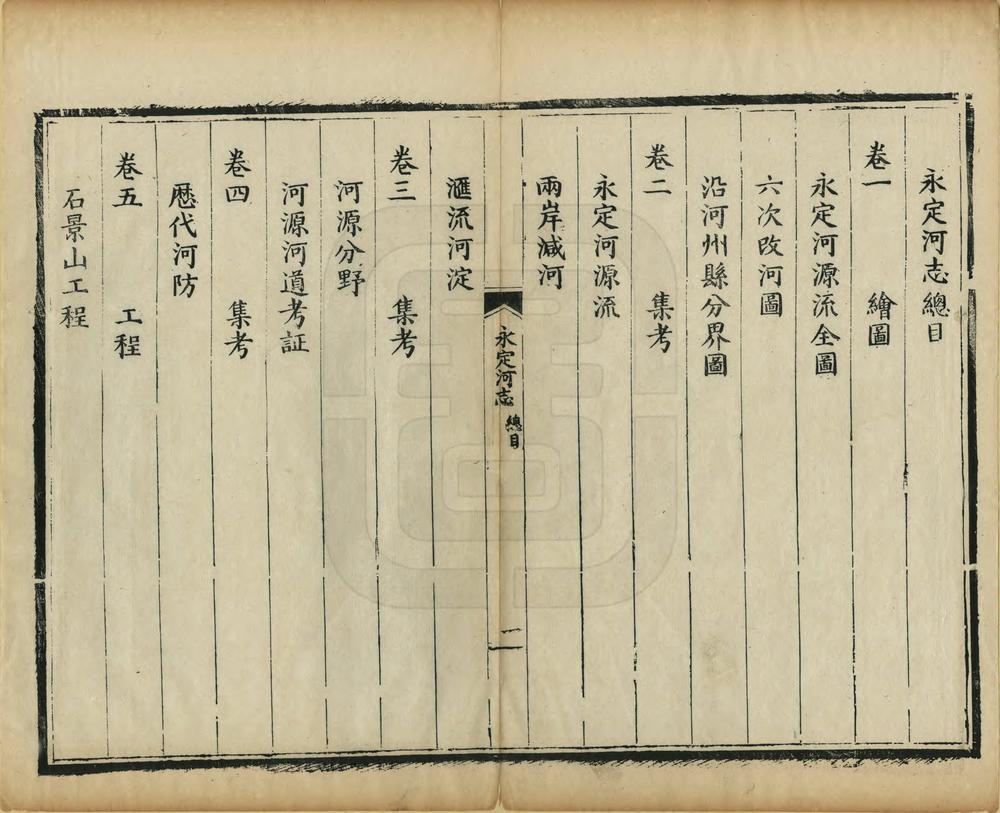 永定河志總目
卷一 繪圖
永定河源流全圖
六次改河圖
沿河州縣分界圖
卷二 集考
永定河源流
兩岸減河
滙流河淀
永定河志 總目 二
卷三 集考
河源分野
河源河道考証
卷四 集考
歷代河防
卷五 工程
石景山工程